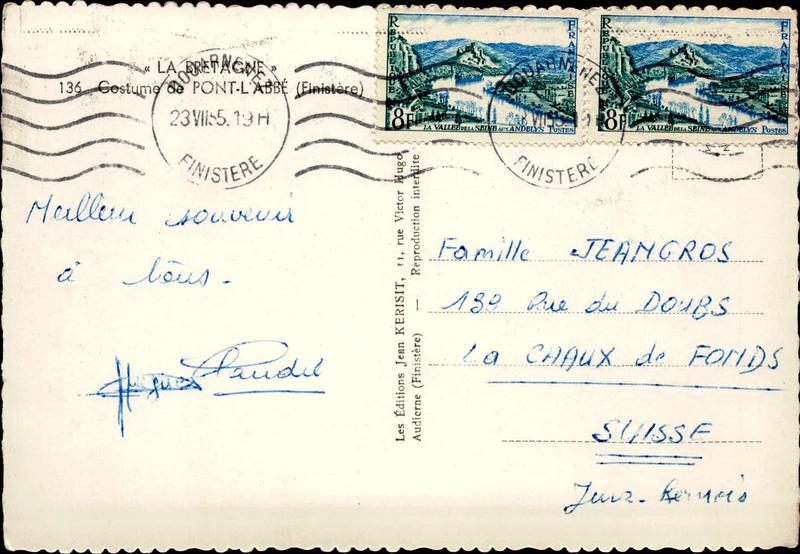 « LA BRETAGNE »
136 - Costume de PONT-L'ABBÉ (Finistère)
DOUARNENEZ
23 VII 55. 19H
FINISTERE
REPUBLIQUE FRANCAISE
8F
LA VALLEE DE LA SEINE AUX ANDELYS Postes
REPUBLIQUE FRANCAISE
8F
LA VALLEE DE LA SEINE AUX ANDELYS Postes
DOUARNENEZ
FINISTERE
Meilleur souvenir
à tous.
Les Éditions Jean KERISIT, 11, rue Victor Hugo
Audierne (Finistère) — Reproduction interdite
Famille JEANGROS
139 Rue du DOUBS
La CHAUX de FONDS
SUISSE
Jura-Bernois